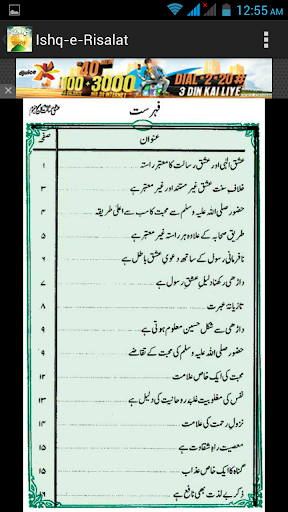 12:55 AM
Ishq-e-Risalat
djuice
40
100 3000
DIAL *2*20#
3 DIN KAI LIYE
فہرست
صفحہ عنوان
۱ عشق الٰہی اور عشق رسالت کا معتبر راستہ
۲ خلاف سنت عشق غیر مستند اور غیر معتبر ہے
۴ حضور صلی اللہ علیہ وسلم سے محبت کا سب سے اعلیٰ طریقہ
۴ طریق صحابہ کے علاوہ ہر راستہ غیر معتبر ہے
۵ نافرمانی رسول کے ساتھ دعویٰ عشق باطل ہے
۶ داڑھی رکھنا دلیل عشق رسول ہے
۸ تازیانۂ عبرت
۹ داڑھی سے شکل حسین معلوم ہوتی ہے
۹ حضور صلی اللہ علیہ وسلم کی محبت کے تقاضے
۱۲ محبت کی ایک خاص علامت
۱۲ نفس کی مغلوبیت غلبۂ روحانیت کی دلیل ہے
۱۴ نزول رحمت کی علامت
۱۵ معصیت راہ شقاوت ہے
۱۵ گناہ کا ایک خاص عذاب
۱۶ ذکر بے لذت بھی نافع ہے